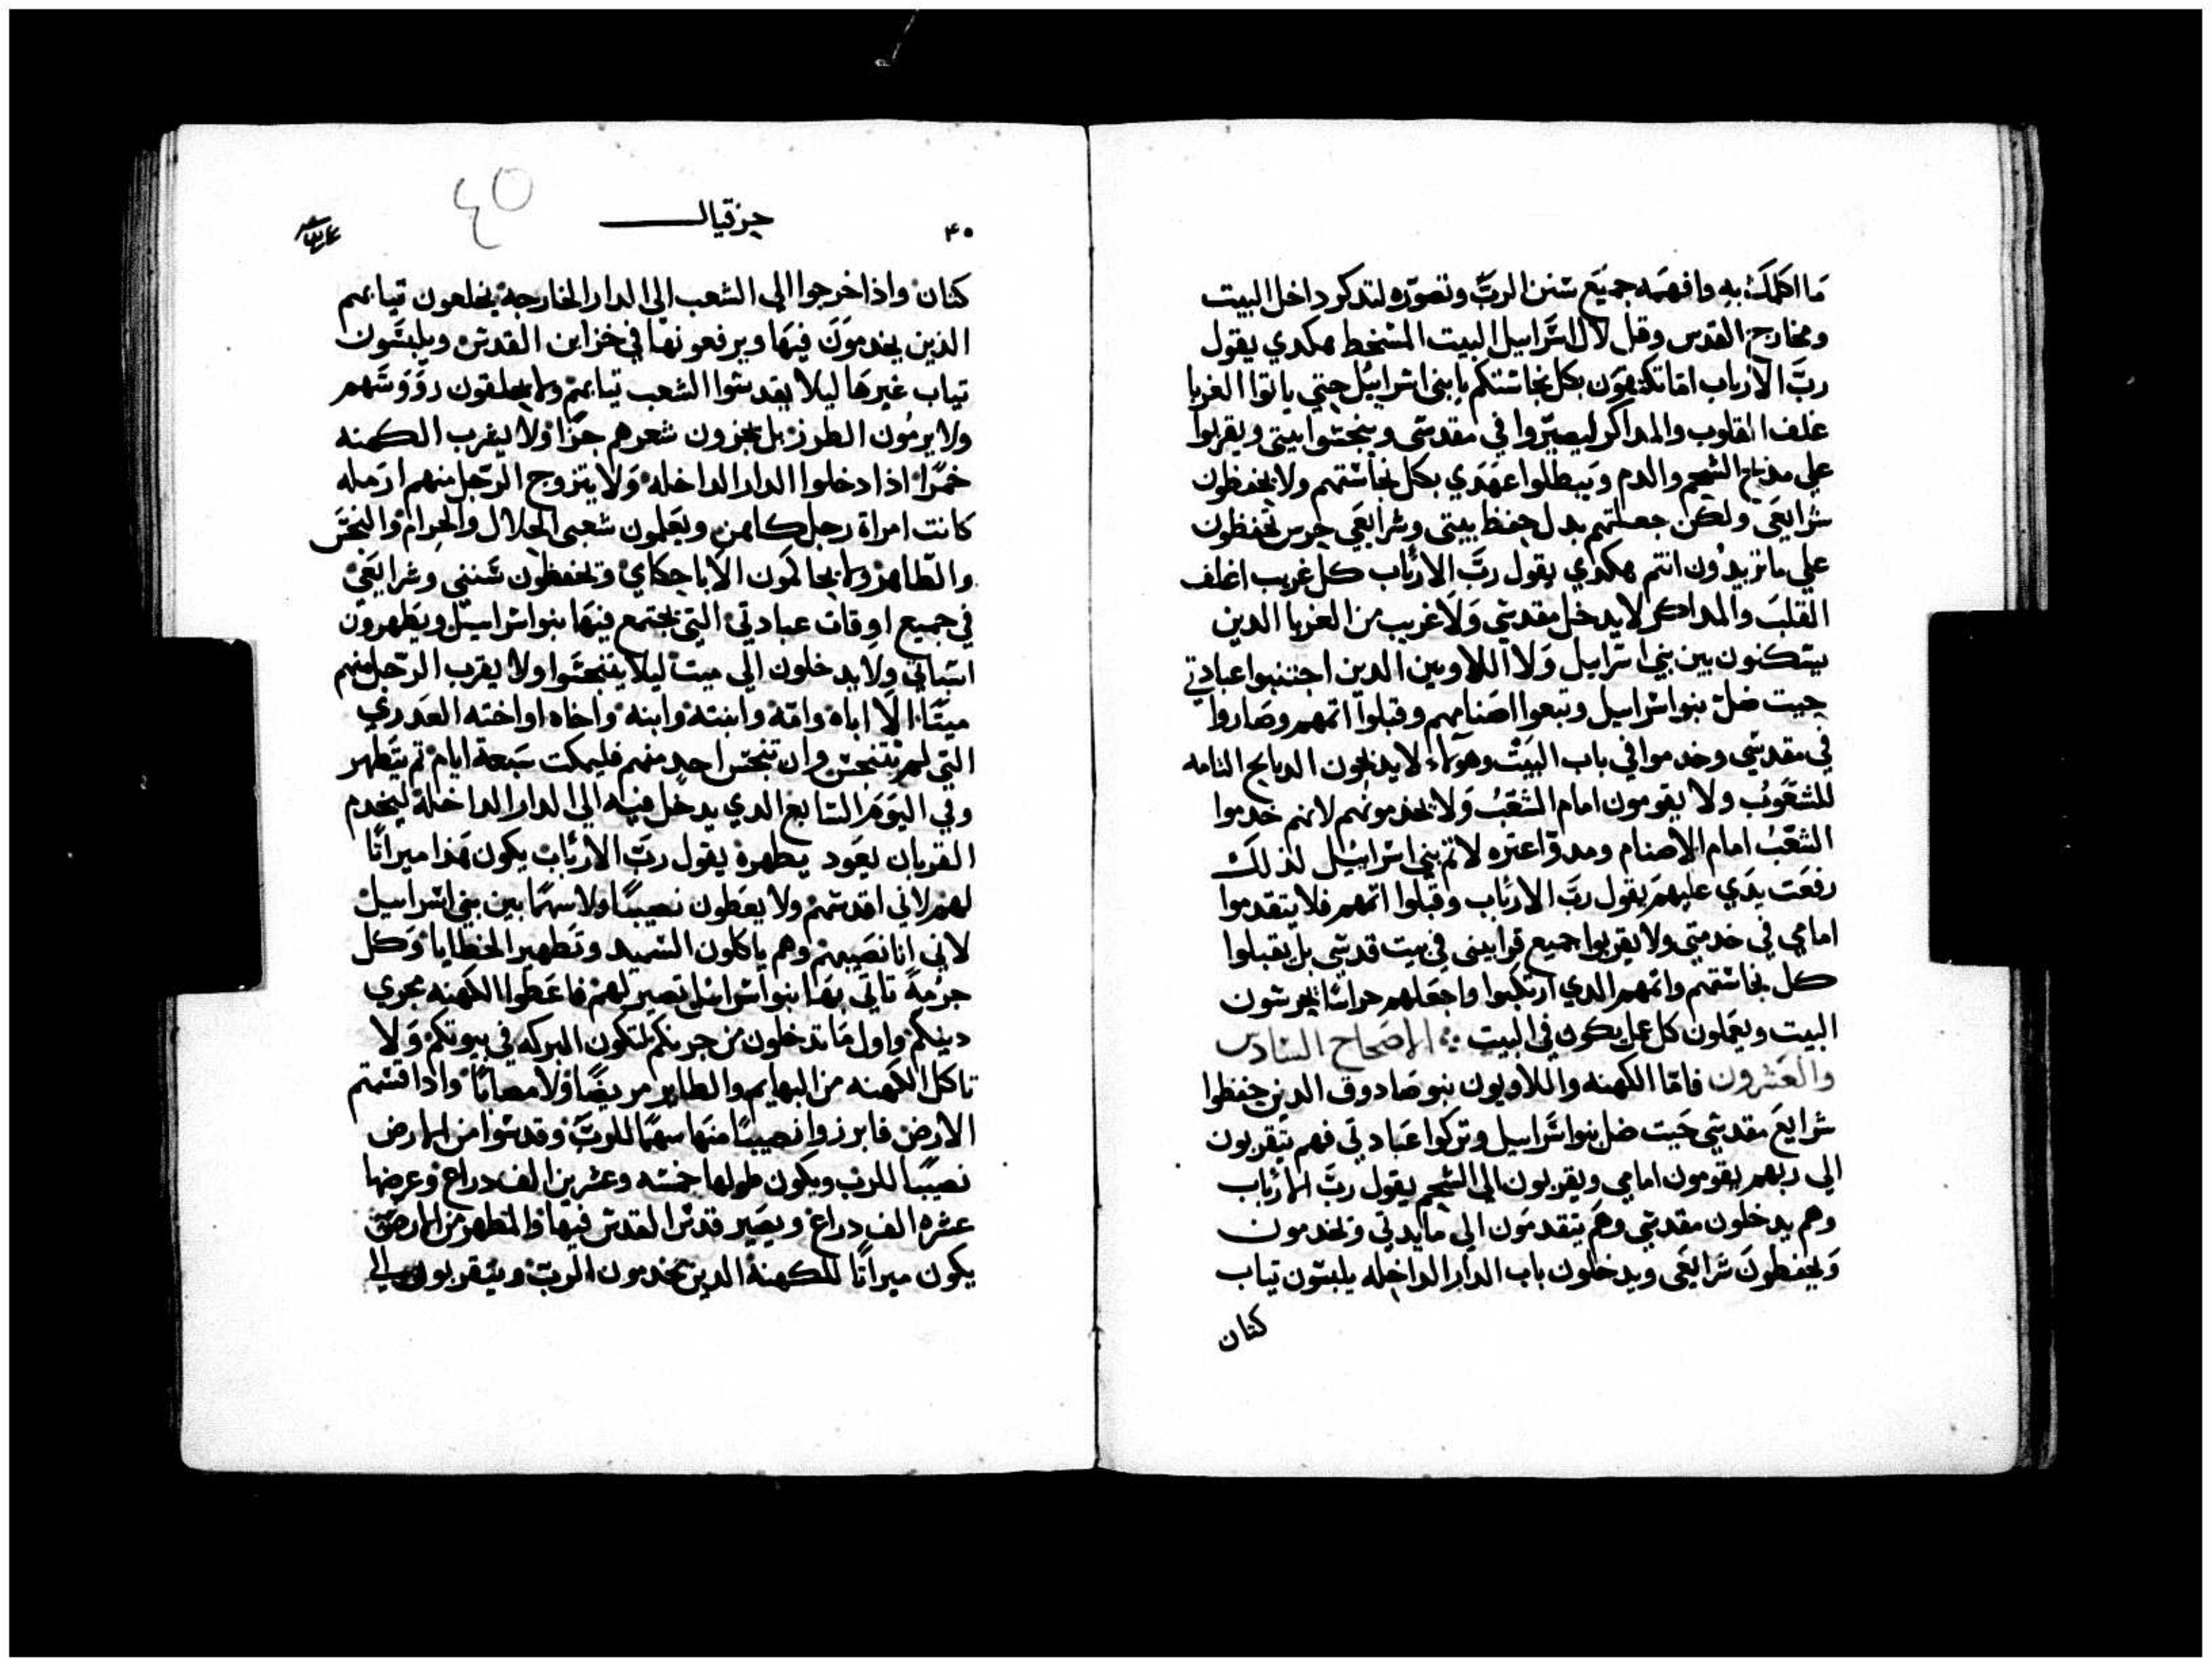 ما اكلمك به وافهمه جميع سنن الرب وتصوره لتدكر داخل البيت
ومخارج القدس وقل لال اسراييل البيت المسخط هكدي يقول
رب الارباب اما تكتفون بكل نجاستكم يا بني اسراييل حتي ياتوا الغربا
غلف القلوب والمداكر ليصيروا في مقدسي وينجسوا بيتي ويقربوا
علي مدبح الشحم والدم ويبطلوا عهدي بكل نجاستهم ولا يحفظون
شرايعي ولكن جعلتهم بدل حفظ بيتي وشرايعي حرس تحفظون
علي ما تريدون انتم هكدي يقول رب الارباب كل غريب اغلف
القلب والمداكر لا يدخل مقدسي ولا غريب من الغربا الدين
يسكنون بين بني اسراييل ولا اللاويين الدين اجتنبوا عبادتي
حيت ضل بنوا اسراييل وتبعوا اصنامهم وقبلوا اتمهم وصاروا
في مقدسي وخدموا في باب البيت وهولاء لا يدبحون الدبايح التامه
للشعوب ولا يقومون امام الشعب ولا يخدمونهم لانهم خدموا
الشعب امام الاصنام ومدوا عتره لاتم بني اسراييل لذلك
رفعت يدي عليهم يقول رب الارباب وقبلوا اتمهم فلا يتقدموا
امامي في خدمتي ولا يقربوا جميع قرابيني في بيت قدسي بل يقبلوا
كل نجاستهم واتمهم الدي ارتكبوا واجعلهم حراسا يحرسون
البيت ويعملون كل عمل يكون في البيت ⁘ الاصحاح السادس
والعشرون فاما الكهنه واللاويون بنو صادوق الدين حفظوا
شرايع مقدسي حيت ضل بنوا اسراييل وتركوا عبادتي فهم يتقربون
الي ربهم يقومون امامي ويقربون الي الشحم يقول رب الارباب
وهم يدخلون مقدسي وهم يتقدمون الي مايدتي ويخدمون
ويحفظون شرايعي ويدخلون باب الدار الداخله يلبسون تياب
كتان
٤٥
حزقيال
٤٠
كتان واذا خرجوا الي الشعب الي الدار الخارجه يخلعون تيابهم
الذين يخدمون فيها ويرفعونها في خزاين القدس ويلبسون
تياب غيرها ليلا يقدسوا الشعب تيابهم ولا يحلقون رووسهم
ولا يرمون الطرز بل يجزون شعرهم جزا ولا ليقرب الكهنه
خمرا اذا دخلوا الدار الداخله ولا يتزوج الرجل منهم ارمله
كانت امراة رجل كاهن ويعلمون شعبي الحلال والحرام والنجس
والطاهر ولا يحاكمون الا باحكامي وتحفظون سنني وشرايعي
في جميع اوقات عبادتي التي تجتمع فيها بنوا اسراييل ويطهرون
اسباتي ولا يدخلون الي ميت ليلا يتنجسوا ولا يقرب الرجل منهم
ميتا الا اباه وامه وابنته وابنه واخاه او اخته العدري
التي لم تتنجس وان تنجس احد منهم فليمكت سبعة ايام تم يتطهر
وفي اليوم السابع الدي يدخل فيه الي الدار الداخلة ليخدم
القربان يعود يطهره يقول رب الارباب يكون هذا ميراتا
لهم لاني اقدسهم ولا يعطون نصيبا ولا سهما بين بني اسراييل
لاني انا نصيبهم وهم ياكلون السميد وتطهير الخطايا وكل
حرمة تاتي بها بنوا اسراييل تصير لهم فاعطوا الكهنه مجري
دينكم واول ما تدخلون من جرنكم لتكون البركه في بيوتكم ولا
تاكل الكهنه من البهايم والطاير مريضا ولا مصابا واذا قسمتم
الارض فابرزوا نصيبا منها سهما للرب وقدسوا من الارض
نصيبا للرب ويكون طولها خمسه وعشرين الف دراع وعرضها
عشره الف دراع ويصير قدس القدس فيها والمطهر من الارض
يكون ميراتا للكهنة الدين يخدمون الرب ويتقربون الي